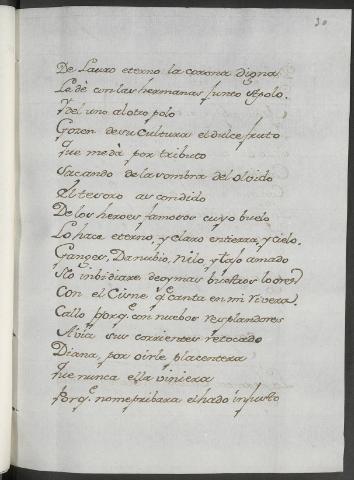 30
De Lauro eterno la corona digna
Le dè con las hermanas junto Apolo.
Y del uno al otro polo
Gozen de su Cultura el dulce fruto
que me dà por tributo
Sacando de la sombra del olvido
El tesoro ascondido
De los heroes famosos cuyo buelo
Lo hace eterno, y claro en tierra, y cielo.
Ganges, Danubio, Nilo, y tajo amado
No inbidiare de oy mas buestros loores
Con el Cisne q.e canta en mi Rivera.
Callo porq.e con nuebos resplandores
Avia sus corrientes retocado
Diana, por oirle placentera
que nunca ella viniera
Porq.e no me pribara el hado injusto